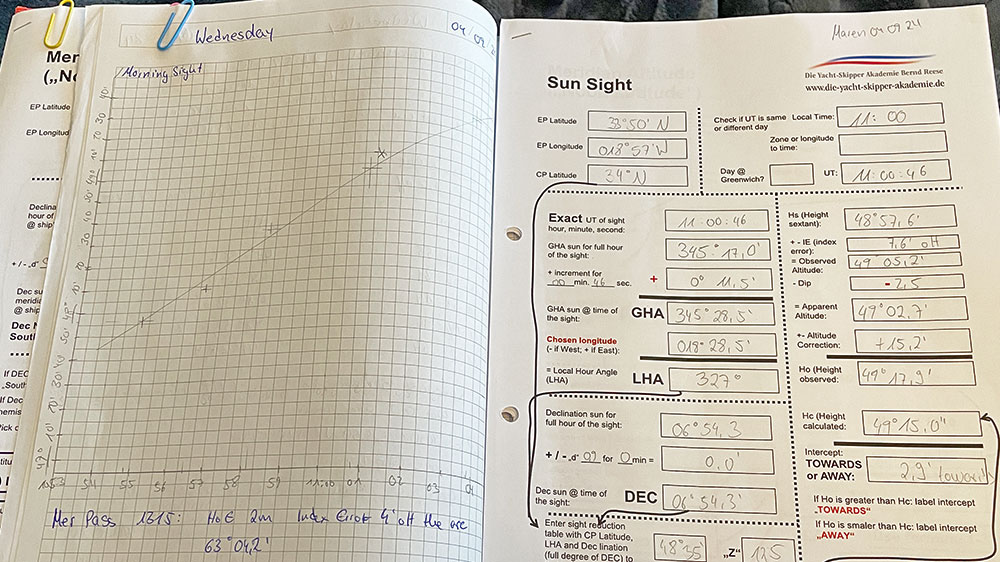 Mer
(„No
EP Latitude
EP Longitud
Declina
hour of
@ ship
+ / - „d"
Dec su
meridia
@ ship
Dec N
South
If DEC
„South
If Dec
hemis
Pick c
Wednesday
04/09/2
Morning Sight
40'
30
20
10'
49°
50
40
30
20
10'
48°
50'
40
30'
20
10'
47°
1053 54 55 56 57 58 59 11:00 01 02 03 04
Mer Pass 1315: HoE 2m Index Error 4' off the arc
63°04,2'
Maren 04 09 24
Die Yacht-Skipper Akademie Bernd Reese
www.die-yacht-skipper-akademie.de
Sun Sight
EP Latitude 33°50' N
EP Longitude 018°57'W
CP Latitude 34°N
Check if UT is same or different day
Local Time: 11:00
Zone or longitude to time:
Day @ Greenwich?
UT: 11:00:46
Exact UT of sight
hour, minute, second: 11:00:46
GHA sun for full hour
of the sight: 345° 17,0'
+ increment for
00 min. 46 sec. + 0° 11,5'
GHA sun @ time of
the sight: GHA 345° 28,5'
Chosen longitude
(- if West; + if East): 018° 28,5'
= Local Hour Angle
(LHA) LHA 327°
Declination sun for
full hour of the sight: 06° 54,3
+ / - „d" 09 for 0 min = 0,0'
Dec sun @ time of
the sight: DEC 06° 54,3'
Enter sight reduction
table with CP Latitude,
LHA and Dec lination
(full degree of DEC) to
48°35 „Z" 125
Hs (Height
sextant): 48°57,6'
+ - IE (index
error): 7,6' off
= Observed
Altitude: 49°05,2'
- Dip - 2,5
= Apparent
Altitude: 49°02,7'
+- Altitude
Correction: +15,2'
Ho (Height
observed: 49° 17,9'
Hc (Height
calculated: 49°15,0"
Intercept:
TOWARDS
or AWAY: 2,9' towards
If Ho is greater than Hc: label intercept
„TOWARDS"
If Ho is smaller than Hc: label intercept
„AWAY"